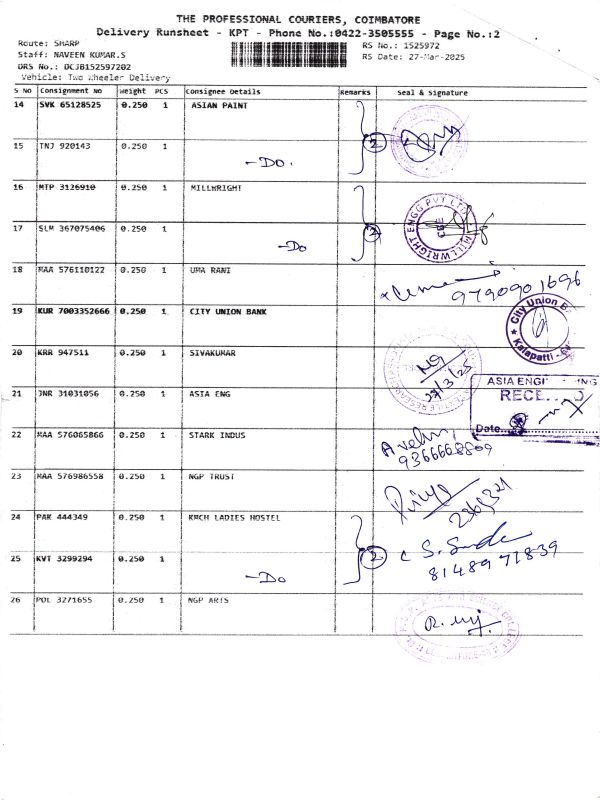 THE PROFESSIONAL COURIERS, COIMBATORE
Delivery Runsheet - KPT - Phone No.:0422-3505555 - Page No.:2
Route: SHARP
Staff: NAVEEN KUMAR.S
DRS No.: DCJB152597202
Vehicle: Two Wheeler Delivery
RS No.: 1525972
RS Date: 27-Mar-2025
S No Consignment No Weight PCS Consignee Details Remarks Seal & signature
14 SVK 65128525 0.250 1 ASIAN PAINT
15 TNJ 920143 0.250 1
-DO.
2
16 MTP 3126910 0.250 1 MILLWRIGHT
17 SLM 367075406 0.250 1
-DO
2
MILLWRIGHT ENGG PVT LTD
18 MAA 576110122 0.250 1 UMA RANI
9790901696
19 KUR 7003352666 0.250 1 CITY UNION BANK
City Union
Kalapatti
20 KRR 947511 0.250 1 SIVAKUMAR
27/3/25
21 JNR 31031056 0.250 1 ASIA ENG
ASIA ENGI
Date
22 MAA 576065866 0.250 1 STARK INDUS
9366668809
23 MAA 576986558 0.250 1 NGP TRUST
24 PAK 444349 0.250 1 KMCH LADIES HOSTEL
25 KVT 3299294 0.250 1
-DO
2
8148971839
26 POL 3271655 0.250 1 NGP ARTS